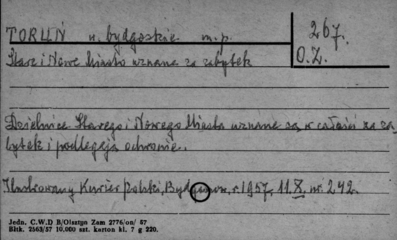 TORUŃ w. bydgoskie m.p.
267.
O.Z.
Stare i Nowe Miasto uznane za zabytek
Dzielnice Starego i Nowego Miasta uznane są w całości za za-
bytek i podlegają ochronie.
Ilustrowany Kurier Polski, Bydgoszcz, r. 1957, 11.X, nr. 242.
Jedn. C.W.D B/Olsztyn Zam 2776/on/ 57
Bltk. 2563/57 10,000 szt. karton kl. 7 g 220.